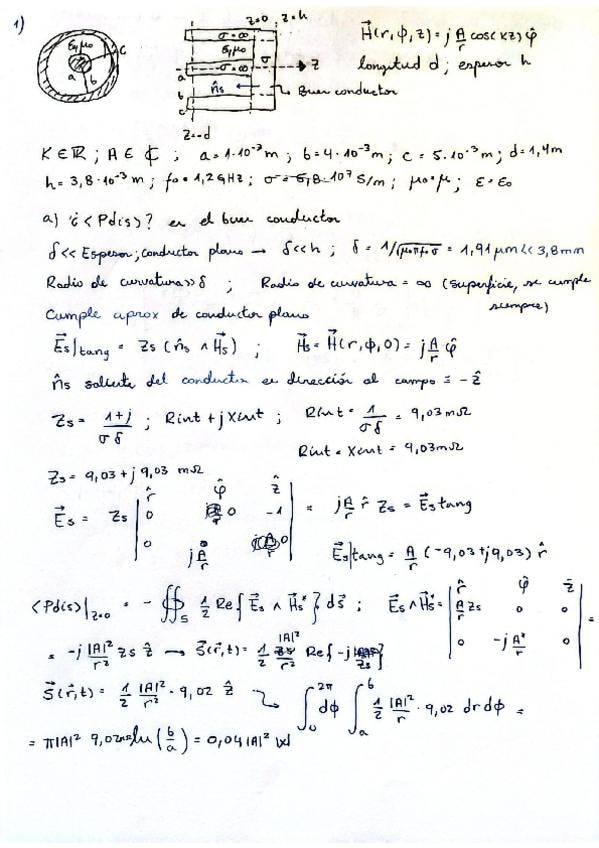 1)
z=0 z=h
σ=∞
ε,μ₀
σ=∞
σ
z
n̂s
a
b
c
z=-d
Buen conductor
ε,μ₀
a
b
c
H⃗(r,φ,z)=j A/r cos(kz) φ̂
longitud d; espesor h
K ∈ ℝ ; A ∈ ℂ ; a=1·10⁻³m ; b=4·10⁻³m ; c=5·10⁻³m ; d=1,4m
h=3,8·10⁻³m ; f₀=1,2GHz ; σ=5,8·10⁷S/m ; μ₀=μ ; ε=ε₀
a) ¿<Pdis>? en el buen conductor
δ<<Espesor; conductor plano → δ<<h ; δ = 1/√(μ₀πf₀σ) = 1,91μm<<3,8mm
Radio de curvatura>>δ ; Radio de curvatura = ∞ (superficie, se cumple siempre)
Cumple aprox de conductor plano
E⃗s|tang = Zs (n̂s ∧ H⃗s) ; H⃗s = H⃗(r,φ,0) = j A/r φ̂
n̂s saliente del conductor en dirección al campo = -ẑ
Zs = 1+j/σδ ; Rint+jXint ; Rint = 1/σδ = 9,03mΩ
Rint = Xint = 9,03mΩ
Zs = 9,03+j9,03 mΩ
E⃗s = Zs | r̂ φ̂ ẑ | 0 0 -1 | 0 j A/r 0 | = j A/r r̂ Zs = E⃗s tang
E⃗s|tang = A/r (-9,03+j9,03) r̂
<Pdis>|z=0 = - ∯s 1/2 Re{E⃗s ∧ H⃗s*} ds⃗ ; E⃗s∧H⃗s* = | r̂ φ̂ ẑ | A/r Zs 0 0 | 0 -j A*/r 0 | =
= -j |A|²/r² Zs ẑ → S⃗(r⃗,t) = 1/2 |A|²/r² Re{-j Zs}
S⃗(r⃗,t) = 1/2 |A|²/r² · 9,02 ẑ ↘ ∫₀^2π dφ ∫ₐ^b 1/2 |A|²/r · 9,02 dr dφ =
= π|A|² 9,02 ln(b/a) = 0,04|A|² W